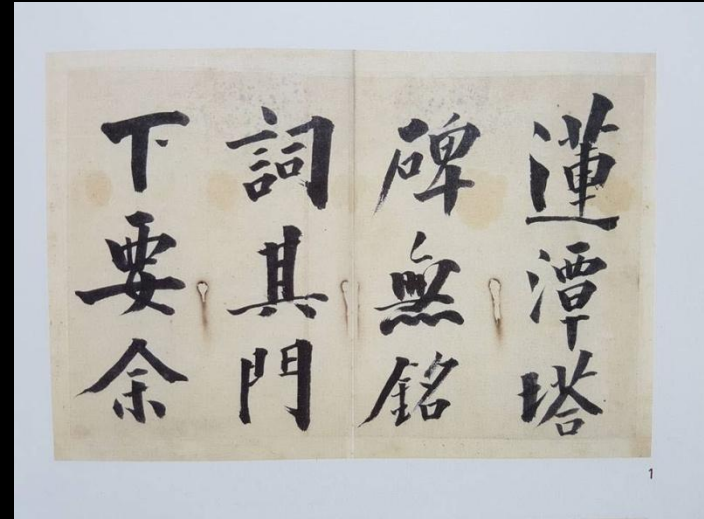 蓮潭塔
碑無銘
詞其門
下要余
1